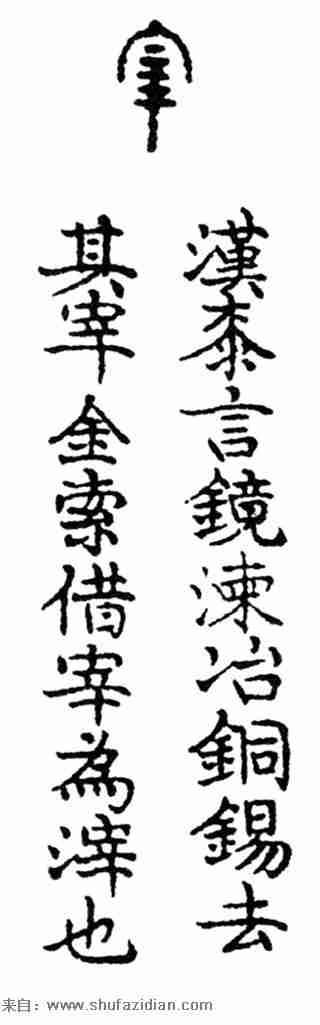 宰
漢桼言鏡湅冶銅錫去
其宰金索借宰為滓也
来自：www.shufazidian.com